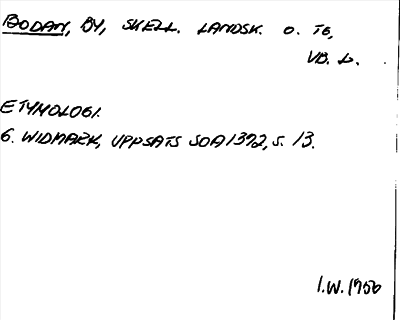 BODAN, BY, SKELL. LANDSK. O. TG,
VB. L.
ETYMOLOGI.
G. WIDMARK, UPPSATS SOA 1392, S. 13.
I.W. 1956